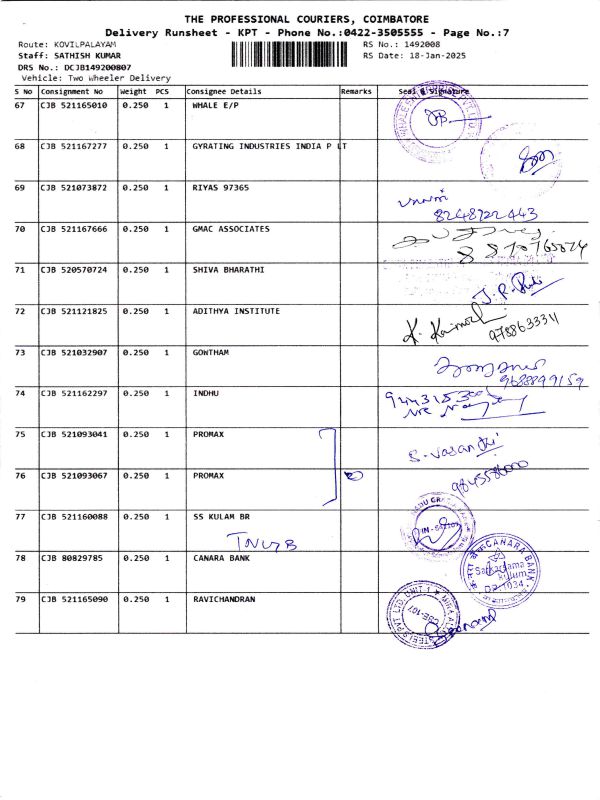 THE PROFESSIONAL COURIERS, COIMBATORE
Delivery Runsheet - KPT - Phone No.:0422-3505555 - Page No.:7
Route: KOVILPALAYAM RS No.: 1492008
Staff: SATHISH KUMAR RS Date: 18-Jan-2025
DRS No.: DCJB149200807
Vehicle: Two Wheeler Delivery
S No Consignment No Weight PCS Consignee Details Remarks Seal & Signature
67 CJB 521165010 0.250 1 WHALE E/P
68 CJB 521167277 0.250 1 GYRATING INDUSTRIES INDIA P LT
69 CJB 521073872 0.250 1 RIYAS 97365
8248722443
70 CJB 521167666 0.250 1 GMAC ASSOCIATES
71 CJB 520570724 0.250 1 SHIVA BHARATHI
72 CJB 521121825 0.250 1 ADITHYA INSTITUTE
978863334
73 CJB 521032907 0.250 1 GOWTHAM
74 CJB 521162297 0.250 1 INDHU
75 CJB 521093041 0.250 1 PROMAX
S. Vasanthi
76 CJB 521093067 0.250 1 PROMAX
77 CJB 521160088 0.250 1 SS KULAM BR
TNGB
78 CJB 80829785 0.250 1 CANARA BANK
CANARA BANK
Sarkarsama
kulum
DP-1034
79 CJB 521165090 0.250 1 RAVICHANDRAN